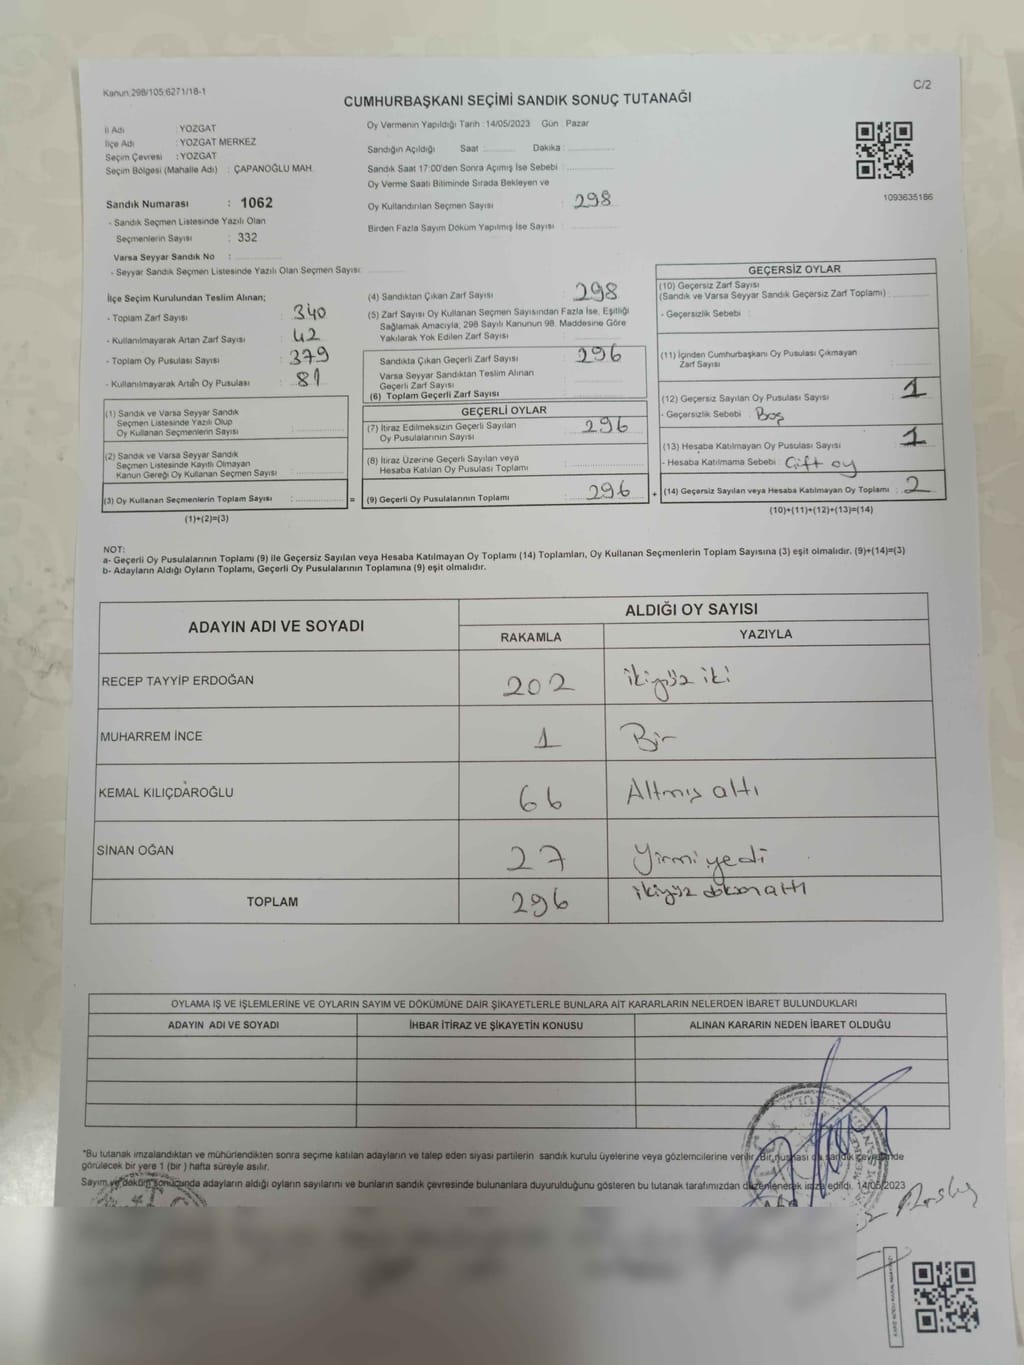 Kanun:298/105;6271/18-1
C/2
CUMHURBAŞKANI SEÇİMİ SANDIK SONUÇ TUTANAĞI
İl Adı : YOZGAT
İlçe Adı : YOZGAT MERKEZ
Seçim Çevresi : YOZGAT
Seçim Bölgesi (Mahalle Adı) : ÇAPANOĞLU MAH.
Sandık Numarası : 1062
- Sandık Seçmen Listesinde Yazılı Olan
Seçmenlerin Sayısı : 332
Varsa Seyyar Sandık No :
- Seyyar Sandık Seçmen Listesinde Yazılı Olan Seçmen Sayısı:
Oy Vermenin Yapıldığı Tarih : 14/05/2023 Gün : Pazar
Sandığın Açıldığı Saat Dakika :
Sandık Saat 17:00'den Sonra Açımış İse Sebebi :
Oy Verme Saati Bitiminde Sırada Bekleyen ve
Oy Kullandırılan Seçmen Sayısı : 298
Birden Fazla Sayım Döküm Yapılmış İse Sayısı :
1093635186
İlçe Seçim Kurulundan Teslim Alınan;
- Toplam Zarf Sayısı : 340
- Kullanılmayarak Artan Zarf Sayısı : 42
- Toplam Oy Pusulası Sayısı : 379
- Kullanılmayarak Artan Oy Pusulası : 81
(1) Sandık ve Varsa Seyyar Sandık
Seçmen Listesinde Yazılı Olup
Oy Kullanan Seçmenlerin Sayısı :
(2) Sandık ve Varsa Seyyar Sandık
Seçmen Listesinde Kayıtlı Olmayan
Kanun Gereği Oy Kullanan Seçmen Sayısı :
(3) Oy Kullanan Seçmenlerin Toplam Sayısı : =
(1)+(2)=(3)
(4) Sandıktan Çıkan Zarf Sayısı : 298
(5) Zarf Sayısı Oy Kullanan Seçmen Sayısından Fazla İse, Eşitliği
Sağlamak Amacıyla, 298 Sayılı Kanunun 98. Maddesine Göre
Yakılarak Yok Edilen Zarf Sayısı :
Sandıkta Çıkan Geçerli Zarf Sayısı : 296
Varsa Seyyar Sandıktan Teslim Alınan
Geçerli Zarf Sayısı
(6) Toplam Geçerli Zarf Sayısı
GEÇERLİ OYLAR
(7) İtiraz Edilmeksizin Geçerli Sayılan
Oy Pusulalarının Sayısı : 296
(8) İtiraz Üzerine Geçerli Sayılan veya
Hesaba Katılan Oy Pusulası Toplamı :
(9) Geçerli Oy Pusulalarının Toplamı : 296 +
GEÇERSİZ OYLAR
(10) Geçersiz Zarf Sayısı
(Sandık ve Varsa Seyyar Sandık Geçersiz Zarf Toplamı) :
- Geçersizlik Sebebi :
(11) İçinden Cumhurbaşkanı Oy Pusulası Çıkmayan
Zarf Sayısı :
(12) Geçersiz Sayılan Oy Pusulası Sayısı : 1
- Geçersizlik Sebebi : Boş
(13) Hesaba Katılmayan Oy Pusulası Sayısı : 1
- Hesaba Katılmama Sebebi : Çift oy
(14) Geçersiz Sayılan veya Hesaba Katılmayan Oy Toplamı : 2
(10)+(11)+(12)+(13)=(14)
NOT:
a- Geçerli Oy Pusulalarının Toplamı (9) ile Geçersiz Sayılan veya Hesaba Katılmayan Oy Toplamı (14) Toplamları, Oy Kullanan Seçmenlerin Toplam Sayısına (3) eşit olmalıdır. (9)+(14)=(3)
b- Adayların Aldığı Oyların Toplamı, Geçerli Oy Pusulalarının Toplamına (9) eşit olmalıdır.
ADAYIN ADI VE SOYADI
ALDIĞI OY SAYISI
RAKAMLA YAZIYLA
RECEP TAYYİP ERDOĞAN 202 ikiyüz iki
MUHARREM İNCE 1 Bir
KEMAL KILIÇDAROĞLU 66 Altmış altı
SİNAN OĞAN 27 Yirmi yedi
TOPLAM 296 ikiyüz doksan altı
OYLAMA İŞ VE İŞLEMLERİNE VE OYLARIN SAYIM VE DÖKÜMÜNE DAİR ŞİKAYETLERLE BUNLARA AİT KARARLARIN NELERDEN İBARET BULUNDUKLARI
ADAYIN ADI VE SOYADI İHBAR İTİRAZ VE ŞİKAYETİN KONUSU ALINAN KARARIN NEDEN İBARET OLDUĞU
*Bu tutanak imzalandıktan ve mühürlendikten sonra seçime katılan adayların ve talep eden siyasi partilerin sandık kurulu üyelerine veya gözlemcilerine verilir. Bir nüshası da sandık çevresinde
görülecek bir yere 1 (bir ) hafta süreyle asılır.
Sayım ve döküm sonucunda adayların aldığı oyların sayılarını ve bunların sandık çevresinde bulunanlara duyurulduğunu gösteren bu tutanak tarafımızdan düzenlenerek imza edildi. 14/05/2023